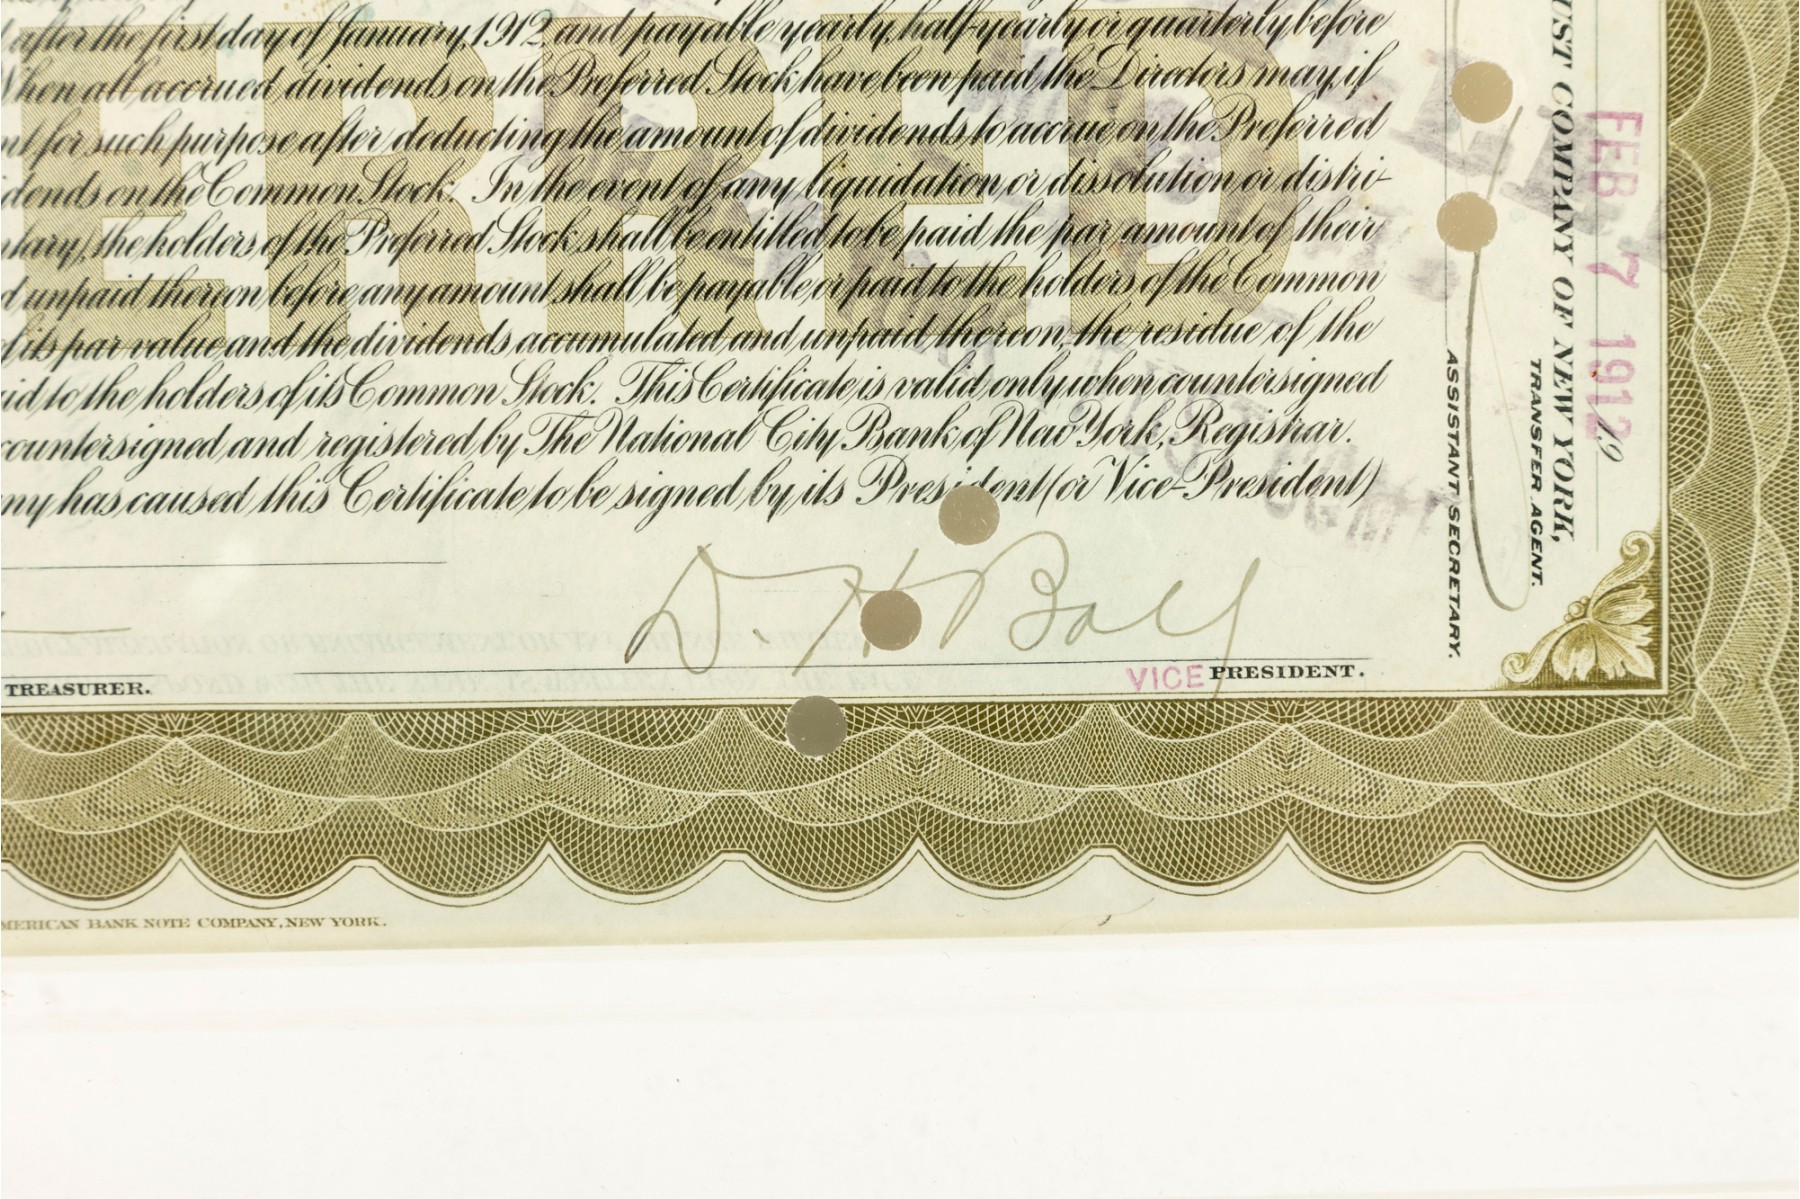 after the first day of January, 1912, and payable yearly, half-yearly or quarterly before
When all accrued dividends on the Preferred Stock have been paid, the Directors may, if
nt for such purpose after deducting the amount of dividends to accrue on the Preferred
idends on the Common Stock. In the event of any liquidation or dissolution or distri-
ntary), the holders of the Preferred Stock shall be entitled to be paid the par amount of their
d unpaid thereon before any amount shall be payable or paid to the holders of the Common
of its par value and the dividends accumulated and unpaid thereon, the residue of the
aid to the holders of its Common Stock. This Certificate is valid only when countersigned
countersigned and registered by The National City Bank of New York, Registrar.
ny has caused this Certificate to be signed by its President (or Vice-President)
ERRED
TREASURER.
VICE PRESIDENT.
AMERICAN BANK NOTE COMPANY, NEW YORK.
ASSISTANT SECRETARY.
UST COMPANY OF NEW YORK,
TRANSFER AGENT.
FEB 7 1912
19